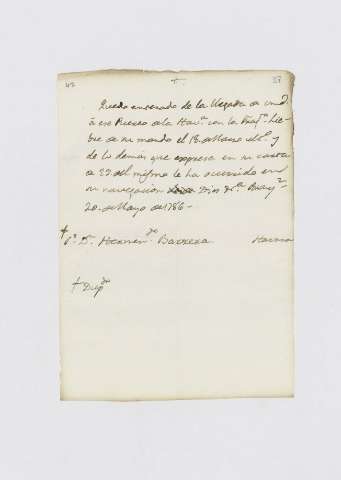 43 + 37
Quedo enterado de la llegada de vmd
à ese Puerto de la Hav.ª con la Frag.ta Lie-
bre de su mando el 18 de Marzo ult.º y
de lo demas que expresa en su carta
de 22 del mismo le ha ocurrido en
su navegacion Dios &.ª
20 de Mayo de 1786 -
+ S.r D.n Barrera Havana
+ Dup.do